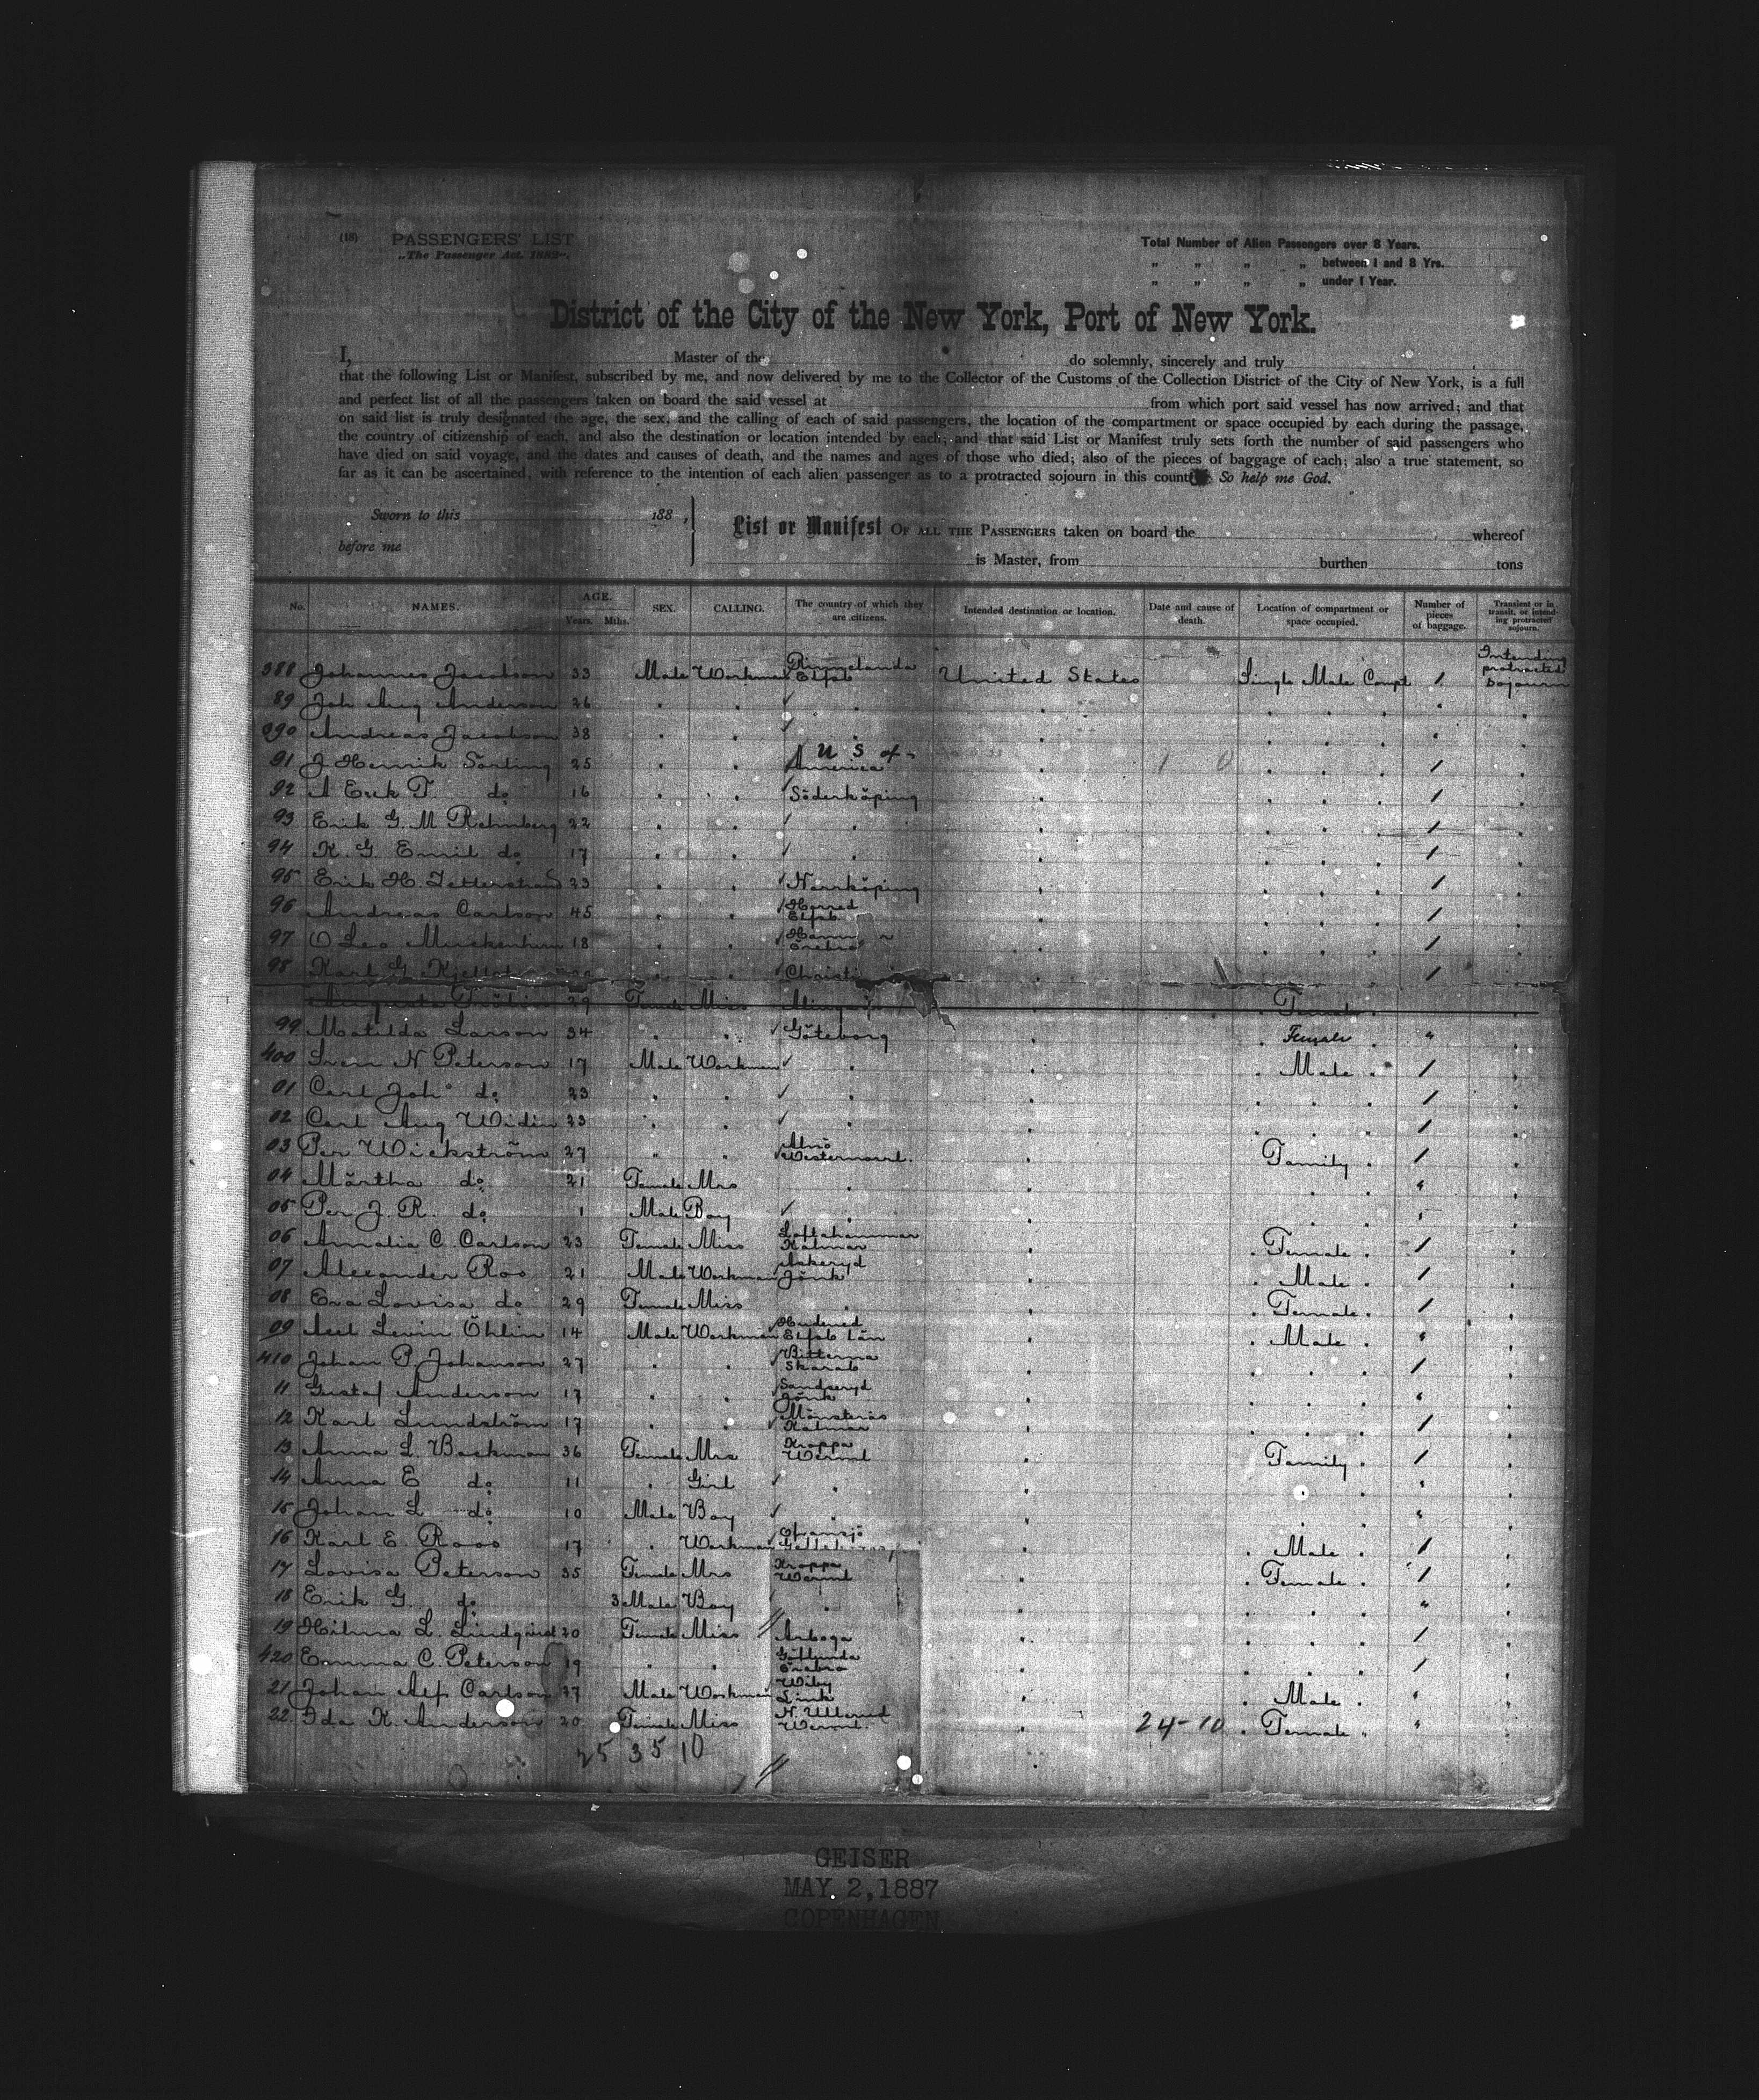 (18) PASSENGERS' LIST
„The Passenger Act. 1882".
Total Number of Alien Passengers over 8 Years.
„ „ „ „ between 1 and 8 Yrs.
„ „ „ „ under 1 Year.
District of the City of the New York, Port of New York.
I, Master of the do solemnly, sincerely and truly
that the following List or Manifest, subscribed by me, and now delivered by me to the Collector of the Customs of the Collection District of the City of New York, is a full
and perfect list of all the passengers taken on board the said vessel at from which port said vessel has now arrived; and that
on said list is truly designated the age, the sex, and the calling of each of said passengers, the location of the compartment or space occupied by each during the passage,
the country of citizenship of each, and also the destination or location intended by each; and that said List or Manifest truly sets forth the number of said passengers who
have died on said voyage, and the dates and causes of death, and the names and ages of those who died; also of the pieces of baggage of each; also a true statement, so
far as it can be ascertained, with reference to the intention of each alien passenger as to a protracted sojourn in this So help me God.
Sworn to this 188 ,
before me
List or Manifest OF ALL THE PASSENGERS taken on board the whereof
is Master, from burthen tons
No. NAMES. AGE. Years. Mths. SEX. CALLING. The country of which they are citizens. Intended destination or location. Date and cause of death. Location of compartment or space occupied. Number of pieces of baggage. Transient or in transit, or intending protracted sojourn.
388 Johannes Jacobson 33 Male Workman Elfsb United States Single Male Compt 1 Intending protracted Sojourn
89 Joh Aug Anderson 26
390 Andreas Jacobson 38
91 J Henrik Sörling 25 U S of America 1 0 1
92 A Erik T. do 16 Söderköping 1
93 Erik G. M Rehnberg 22 1
94 K. G Emil do 17 1
95 Erik H. Zetterstrand 23 Norrköping 1
96 Andreas Carlson 45 Elfsb. 1
97 O Leo 18 Örebro 1
98 Karl G Christi 1
Augusta 29 Female Miss Female
99 Matilda Larson 34 Göteborg Female "
400 Sven N Peterson 17 Male Workman Male 1
01 Carl Joh do 23 1
02 Carl Aug Widin 23 1
03 Per Wickström 27 Alnö Westernorrl. Family 1
04 Märtha do 21 Female Mrs "
05 Per J. R. do 1 Male Boy "
06 Amalia C. Carlson 23 Female Miss Loftahammar Kalmar Female 1
07 Alexander Roo 21 Male Workman Askeryd Jönk Male 1
08 Eva Lovisa do 29 Female Miss Female 1
09 Axel Levin Öhlin 14 Male Workman Hudened Elfsb Län Male "
410 Johan P Johanson 27 Bitterna Skarab 1
11 Gustaf Anderson 17 Sandseryd Jönk "
12 Karl Lundström 17 Mönsterås Kalmar 1
13 Anna L. Backman 36 Female Mrs Kroppa Werml Family 1
14 Anna E do 11 Girl "
15 Johan L do 10 Male Boy "
16 Karl E. Roos 17 Workman Male 1
17 Lovisa Peterson 35 Female Mrs Kroppa Werml Female 1
18 Erik G. do 3 Male Boy "
19 Hilma L. Lindqvist 20 Female Miss Arboga 1
420 Emma C. Peterson 19 Götlunda Örebro 1
21 Johan Alf. Carlson 27 Male Workman Wiby Link Male "
22 Ida K. Anderson 20 Female Miss N. Ullerud Werml. 24-10 Female "
25 35 10
GEISER
MAY 2, 1887
COPENHAGEN